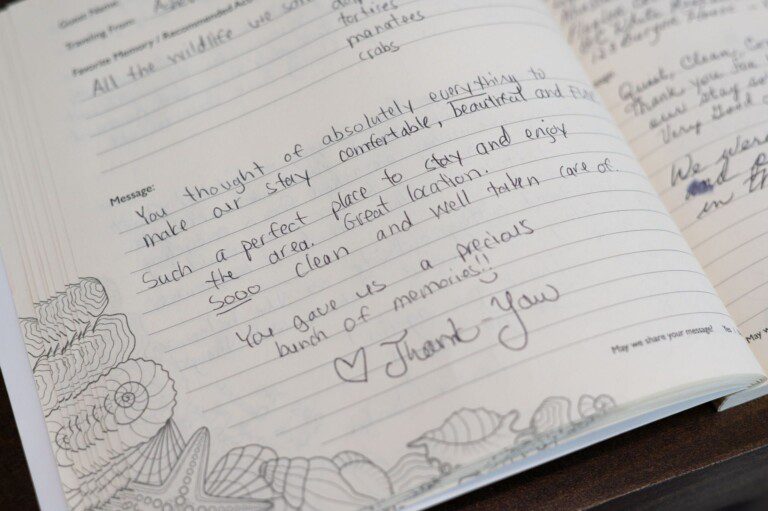 Guest Name:
Traveling From:
Favorite Memory / Recommended
All the wildlife we
tortoises
manatees
crabs
Message:
You thought of absolutely everything to
make our stay comfortable, beautiful and
Such a perfect place to stay and enjoy
the area. Great location.
Sooo clean and well taken care of.
You gave us a precious
bunch of memories!!
♡ Thank-You
May we share your message? Yes
Quiet, Clean,
Thank you for
our stay
Very Good
We were
and
in
May